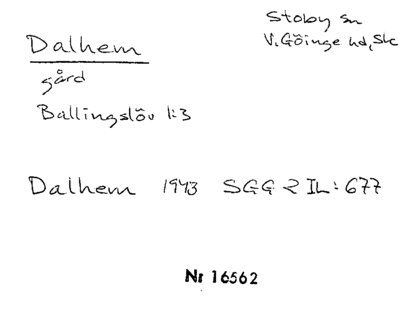 Dalhem
Stoby sn
V. Göinge hd, Sk
gård
Ballingslöv 1:3
Dalhem 1943 SGG 2 IL: 677
Nr 16562